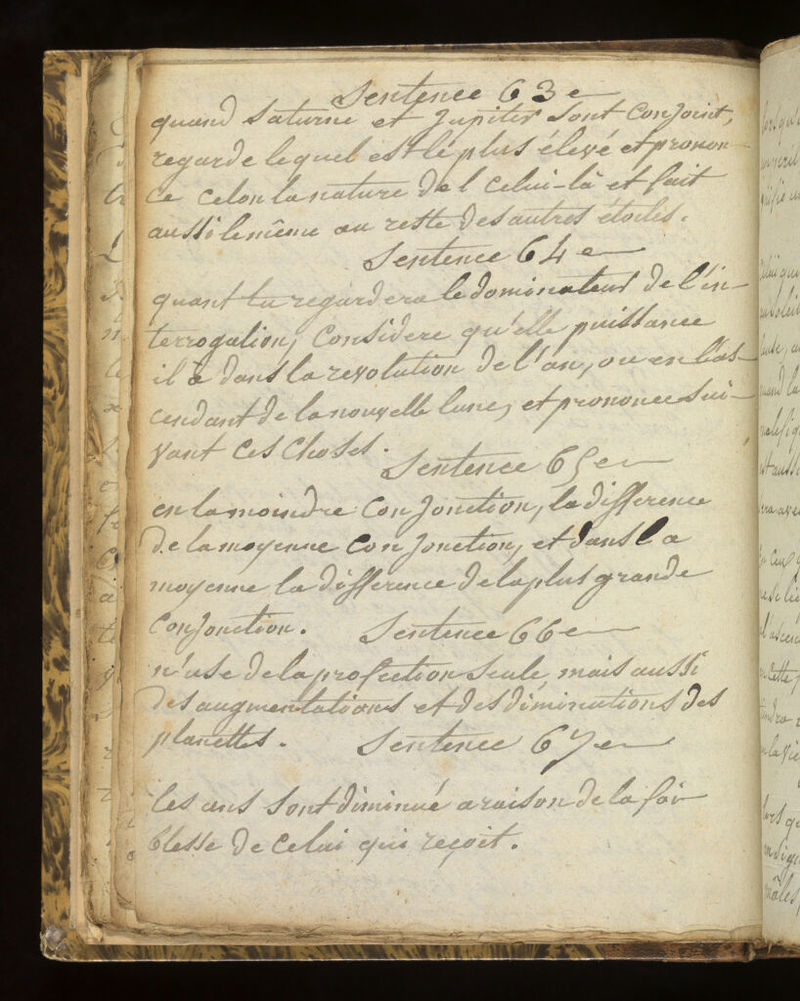 Sentence 63e
quand Saturne et Jupiter Sont Conjoint,
regarde lequel est le plus élevé et pronon-
ce celon la nature de l celui-là et fait
aussi le même au reste des autres étoiles.
Sentence 64e
quant tu regardera le dominateur de l'in-
terrogation, Considere qu'elle puissance
il a dans la revolution de l'an, ou en l'as-
cendant de la nouvelle lune, et prononce sui-
vant ces choses.
Sentence 65e
en la moindre Conjonction, la difference
de la moyenne Conjonction, et dans la
moyenne la difference de la plus grande
Conjonction.
Sentence 66e
n'use de la profection seule, mais aussi
des augmentations et des diminutions des
planettes.
Sentence 67e
les ans sont diminué a raison de la foi-
blesse de celui qui reçoit.